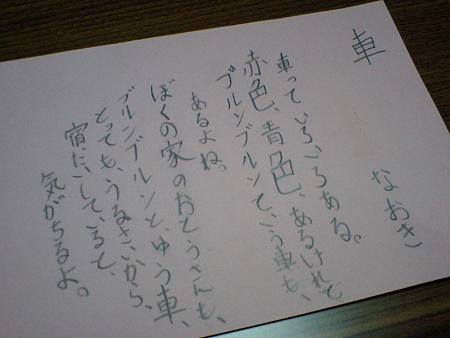 車
なおき
車っていろいろある。
赤色、青色、あるけれど
ブルンブルンてゆう車も、
あるよね。
ぼくの家のおとうさんも、
ブルンブルンと、ゆう車、
とっても、うるさいから、
宿だいしていると、
気がちるよ。